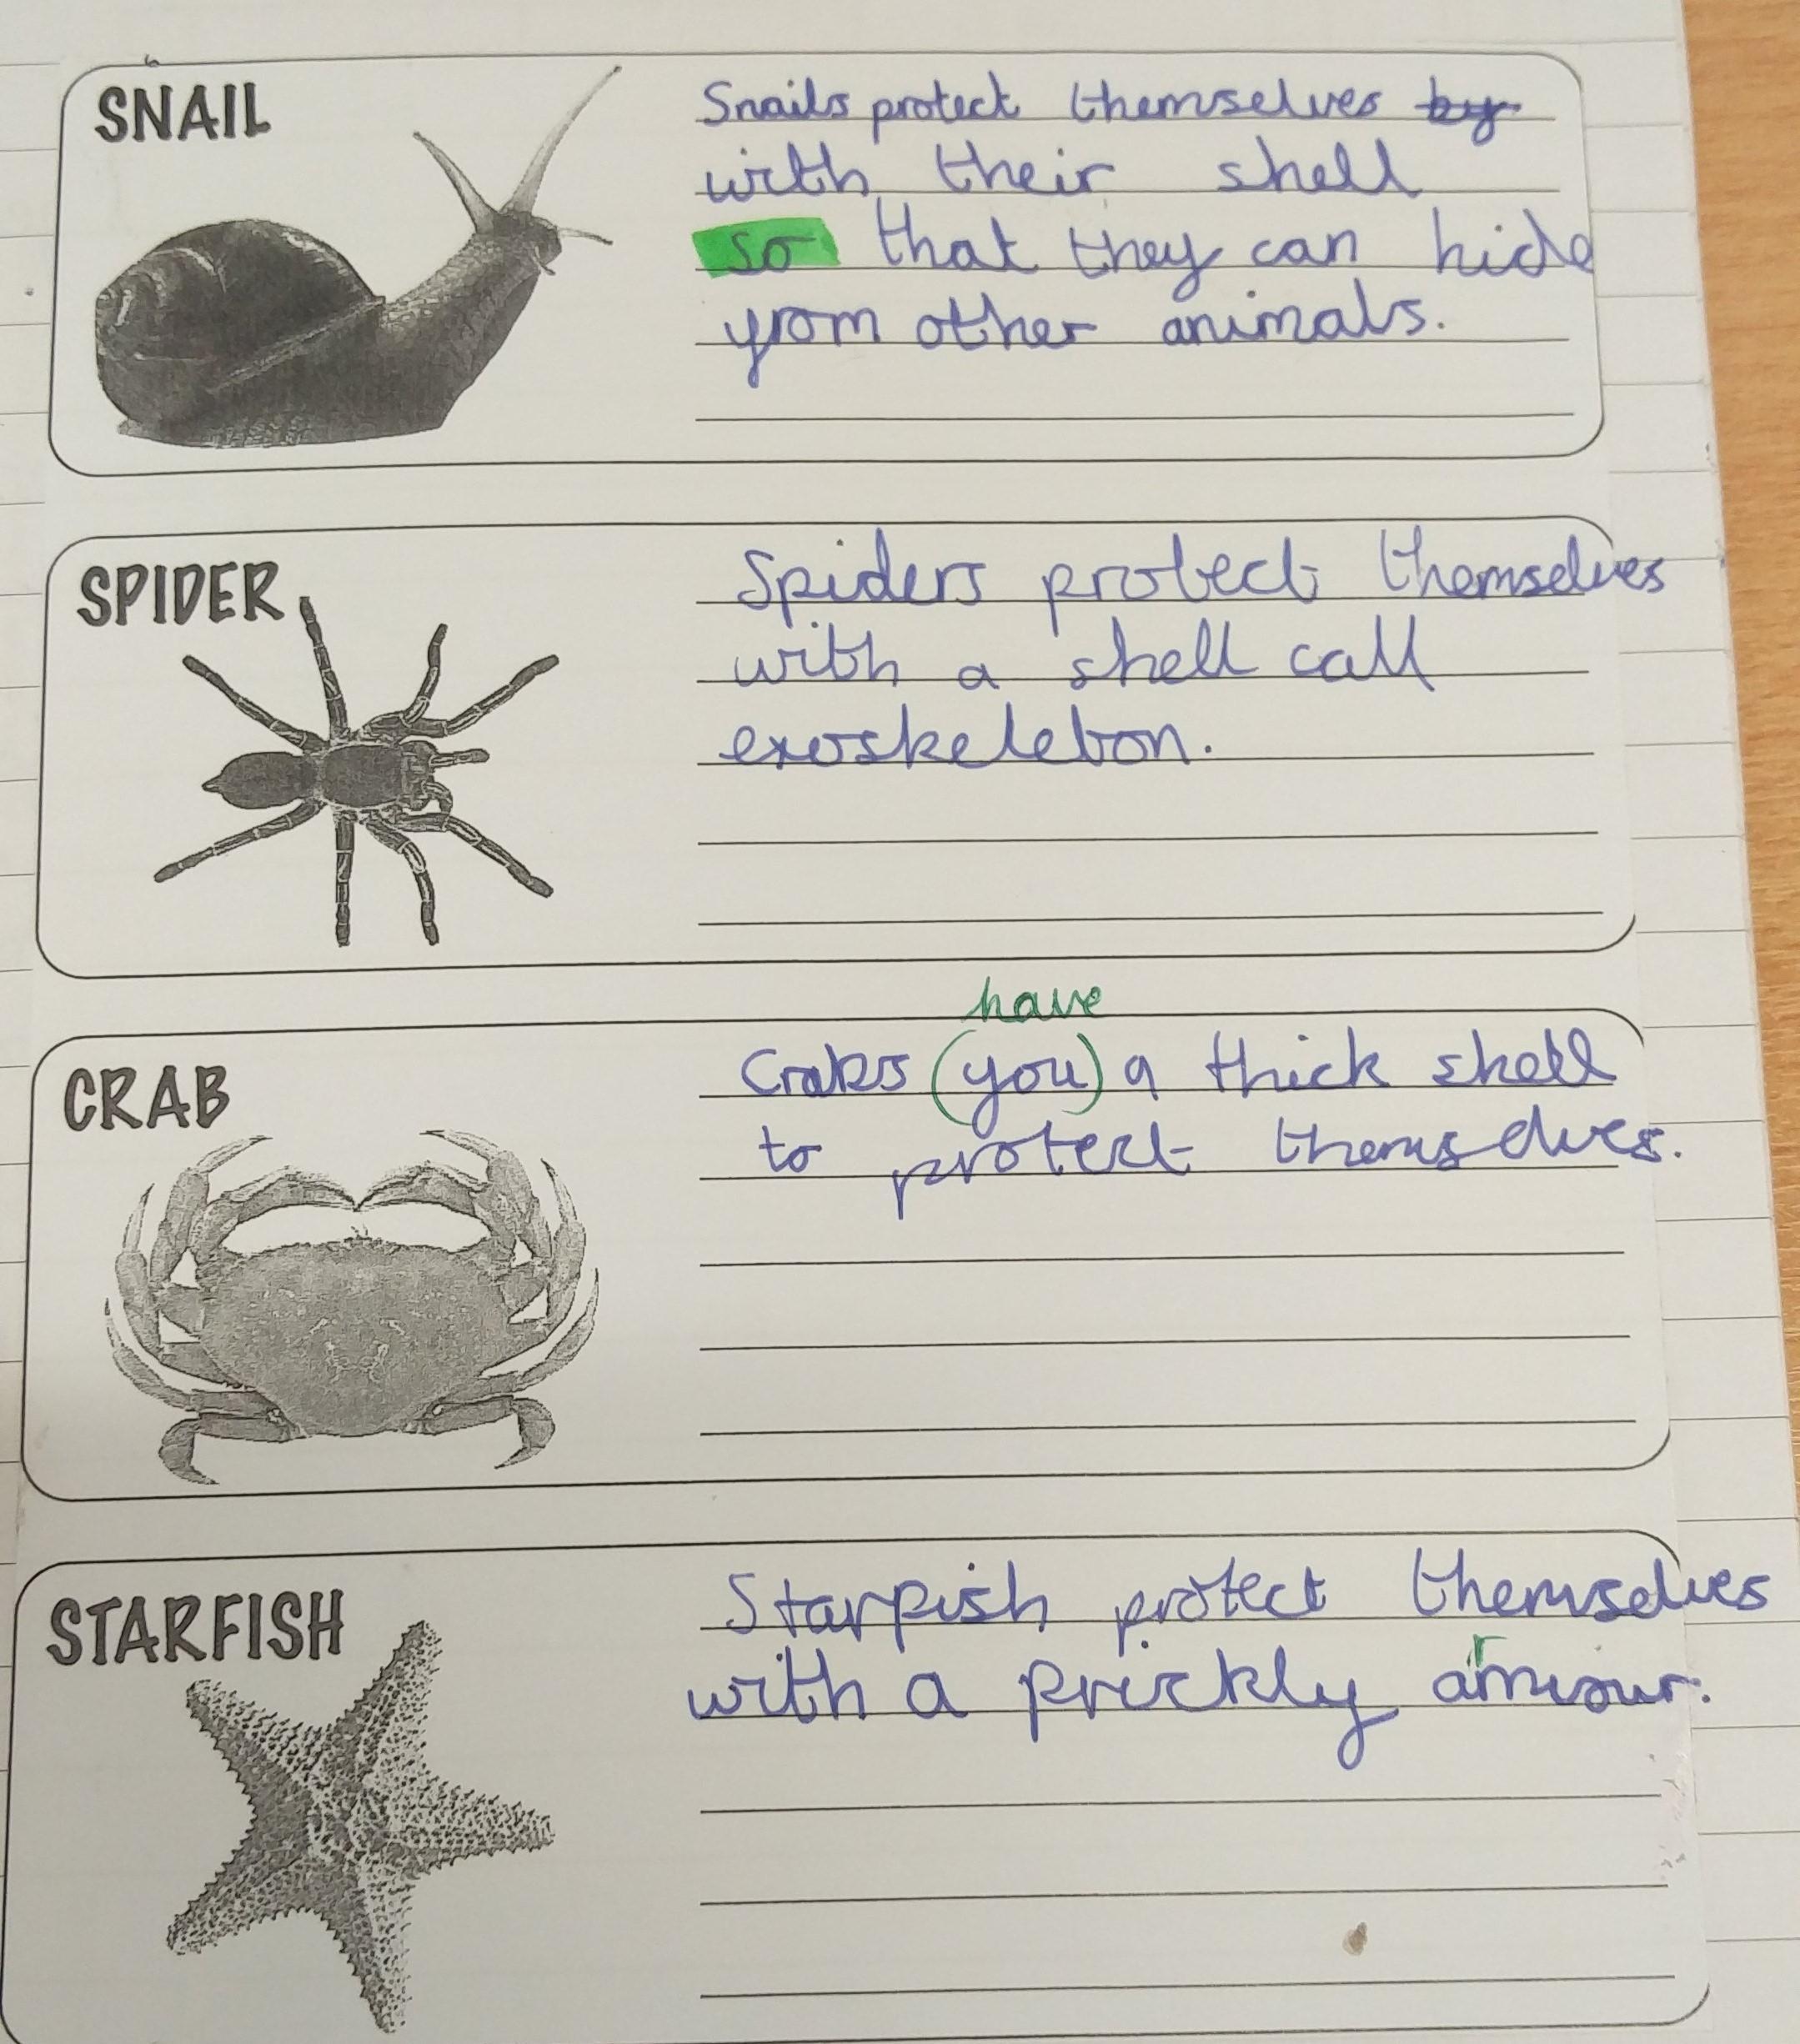 SNAIL
Snails protect themselves by
with their shell
so that they can hide
from other animals.
SPIDER
Spiders protect themselves
with a shell call
exoskeleton.
CRAB
have
Crabs (you) a thick shell
to protect themselves.
STARFISH
Starfish protect themselves
r
with a prickly amour.